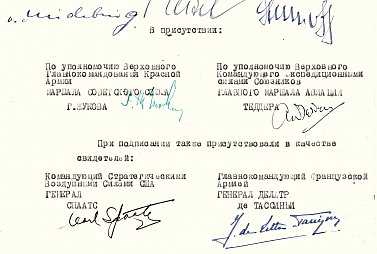 В присутствии:
По уполномочию Верховного
Главнокомандования Красной
Армии
МАРШАЛА СОВЕТСКОГО СОЮЗА
Г.ЖУКОВА
По уполномочию Верховного
Командующего экспедиционными
силами Союзников
ГЛАВНОГО МАРШАЛА АВИАЦИИ
ТЕДДЕРА
При подписании также присутствовали в качестве
свидетелей:
Командующий Стратегическими
Воздушными Силами США
ГЕНЕРАЛ
СПААТС
Главнокомандующий Французской
Армией
ГЕНЕРАЛ ДЕЛАТР
де ТАССИНЬИ